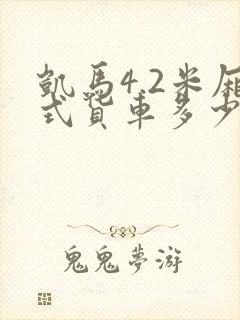 凯马4.2米厢
式货车多少
鬼鬼梦游